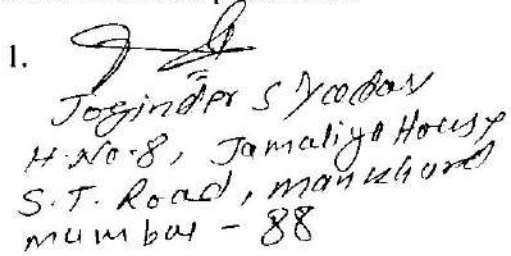 1.
Joginder S Yadav
H.No-8, Jamaliya House
S.T. Road, mankhurd
mumbai - 88